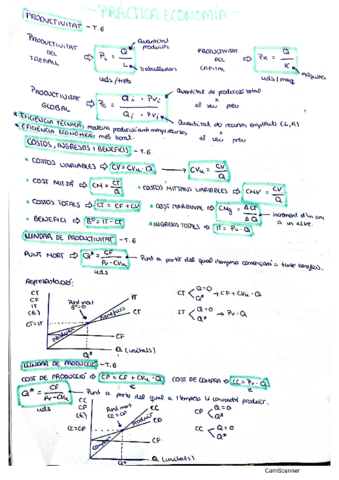 - PRÀCTICA ECONOMIA -
PRODUCTIVITAT - T.6
PRODUCTIVITAT DEL TREBALL ⇒ PL = Q / L
quantitat producció
Treballadors
uds/treb
PRODUCTIVITAT DEL CAPITAL ⇒ PK = Q / K
màquines
uds/maq
PRODUCTIVITAT GLOBAL ⇒ PG = Qi · PVi / Qj · PVj
Quantitat de producció total x el seu preu
Quantitat de recursos emprats (L,K) x el seu preu
* EFICIÈNCIA TÈCNICA: mateixa producció amb menys recursos
* EFICIÈNCIA ECONÒMICA: més barat.
COSTOS, INGRESSOS I BENEFICIS - T.6
* COSTOS VARIABLES ⇒ CV = CVu · Q → CVu = CV / Q
* COST MITJÀ ⇒ CM = CT / Q
* COSTOS MITJANS VARIABLES ⇒ CMV = CV / Q
* COSTOS TOTALS ⇒ CT = CF + CV
* COST MARGINAL ⇒ CMg = ΔCT / ΔQ
increment d'un cm a un altre.
* BENEFICI ⇒ Bº = IT - CT
* INGRESSOS TOTALS ⇒ IT = Pv · Q
LLINDAR DE PRODUCTIVITAT - T.6
PUNT MORT ⇒ Q* = CF / Pv - CVu
uds
Punt a partir del qual l'empresa començarà a tindre beneficis.
Representació:
CT
CF
IT
(€)
CT=IT
Punt mort
Beneficis
Pèrdues
IT
CT
CF
Q*
Q (unitats)
CT Q=0 Q* → CF + CVu · Q
IT Q=0 Q* → Pv · Q
LLINDAR DE PRODUCCIÓ - T.6
COST DE PRODUCCIÓ ⇒ CP = CF + CVu · Q
€
COST DE COMPRA ⇒ CC = Pv · Q
€
Q* = CF / Pv - CVu
uds
Punt a partir del qual a l'empresa li convendrà produir.
CC
CP
CF
(€)
CC=CP
Punt mort
CC=CP
Produir
Comprar
CC
CP
CF
Q*
Q (unitats)
CP Q=0 Q*
CC Q=0 Q*
CamScanner